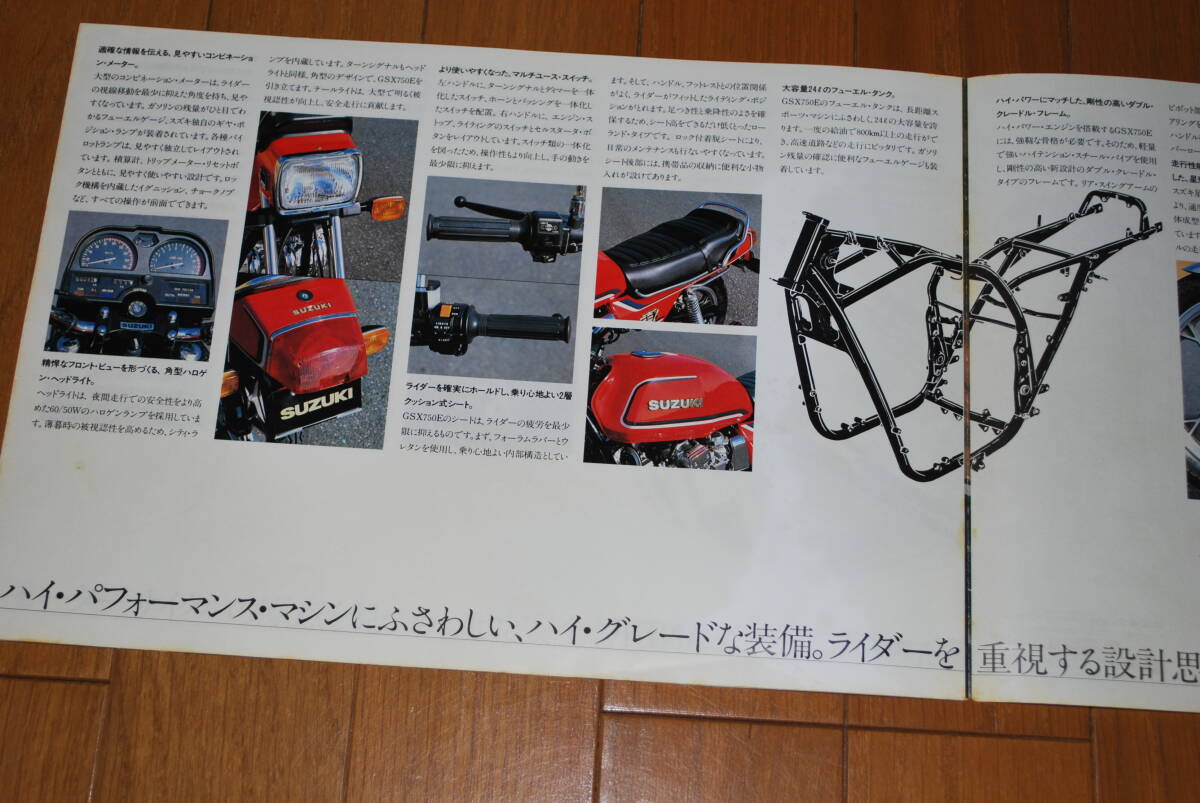 適確な情報を伝える、見やすいコンビネーショ
ン・メーター。
大型のコンビネーション・メーターは、ライダー
の視線移動を最少に抑えた角度を持ち、見や
すくなっています。ガソリンの残量がひと目でわ
かるフューエルゲージ、スズキ独自のギヤ・ポ
ジション・ランプが装着されています。各種パイ
ロットランプは、見やすく独立してレイアウトされ
ています。積算計、トリップメーター・リセットボ
タンとともに、見やすく使いやすい設計です。ロッ
ク機構を内蔵したイグニッション、チョークノブ
など、すべての操作が前面でできます。
SUZUKI
精悍なフロント・ビューを形づくる、角型ハロゲ
ン・ヘッドライト。
ヘッドライトは、夜間走行での安全性をより高
めた60/50Wのハロゲンランプを採用していま
す。薄暮時の被視認性を高めるため、シティ・ラ
ンプを内蔵しています。ターンシグナルもヘッド
ライトと同様、角型のデザインで、GSX750Eを
引き立てます。テールライトは、大型で明るく被
視認性が向上し、安全走行に貢献します。
SUZUKI
SUZUKI
より使いやすくなった、マルチユース・スイッチ。
左ハンドルに、ターンシグナルとディマーを一体
化したスイッチ、ホーンとパッシングを一体化し
たスイッチを配置。右ハンドルに、エンジン・ス
トップ、ライティングのスイッチとセルスタータ・ボ
タンをレイアウトしています。スイッチ類の一体化
を図ったため、操作性もより向上し、手の動きを
最少限に抑えます。
ライダーを確実にホールドし、乗り心地よい2層
クッション式シート。
GSX750Eのシートは、ライダーの疲労を最少
限に抑えるものです。まず、フォーラムラバーとウ
レタンを使用し、乗り心地よい内部構造としてい
ます。そして、ハンドル、フットレストとの位置関係
がよく、ライダーがフィットしたライディング・ポジ
ションがとれます。足つき性と乗降性のよさを確
保するため、シート高をできるだけ低くとったロー
ランド・タイプです。ロック付着脱シートにより、
日常のメンテナンスも行ないやすくなっています。
シート後部には、携帯品の収納に便利な小物
入れが設けてあります。
SUZUKI
大容量24ℓのフューエル・タンク。
GSX750Eのフューエル・タンクは、長距離ス
ポーツ・マシンにふさわしく、24ℓの大容量を誇
ります。一度の給油で800km以上の走行がで
き、高速道路などの走行にピッタリです。ガソリ
ン残量の確認に便利なフューエルゲージも装
着しています。
ハイ・パワーにマッチした、剛性の高いダブル・
クレードル・フレーム。
ハイ・パワー・エンジンを搭載するGSX750E
には、強靱な骨格が必要です。そのため、軽量
で強いハイテンション・スチール・パイプを使用
し、剛性の高い新設計のダブル・クレードル・
タイプのフレームです。リア・スイングアームの
ピボット
アリング
ハンドル
パーロー
走行性
した、星
スズキ
より、適
体成型
ています
ルの走
ハイ・パフォーマンス・マシンにふさわしい、ハイ・グレードな装備。ライダーを重視する設計思